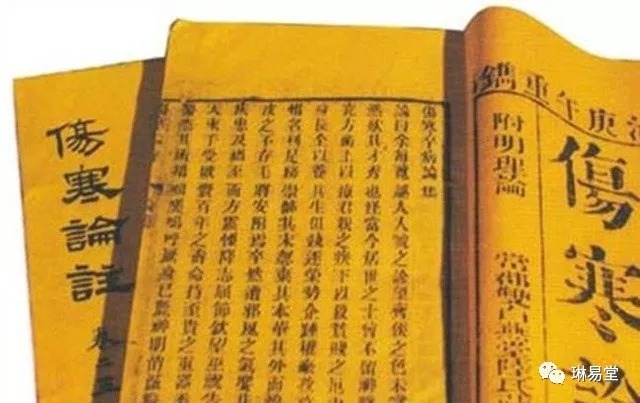 庚午重鐫
傷寒
附明理論
傷寒卒病論集
論曰余每覽越人入虢之診望齊侯之色未
然歎其才秀也怪當今居世之士曾不留神
究方術上以療君親之疾下以救貧賤之厄
身長全以養其生但競逐榮勢企踵權豪
惟名利是務崇飾其末忽棄其本華其外而
皮之不存毛將安附焉卒然遭邪風之氣嬰
疾患及禍至而方震慄降志屈節欽望巫祝告
天束手受敗賚百年之壽命持至貴之重器委
醫恣其所措咄嗟嗚呼厥身已斃神明消滅變
傷寒論註
卷
琳易堂